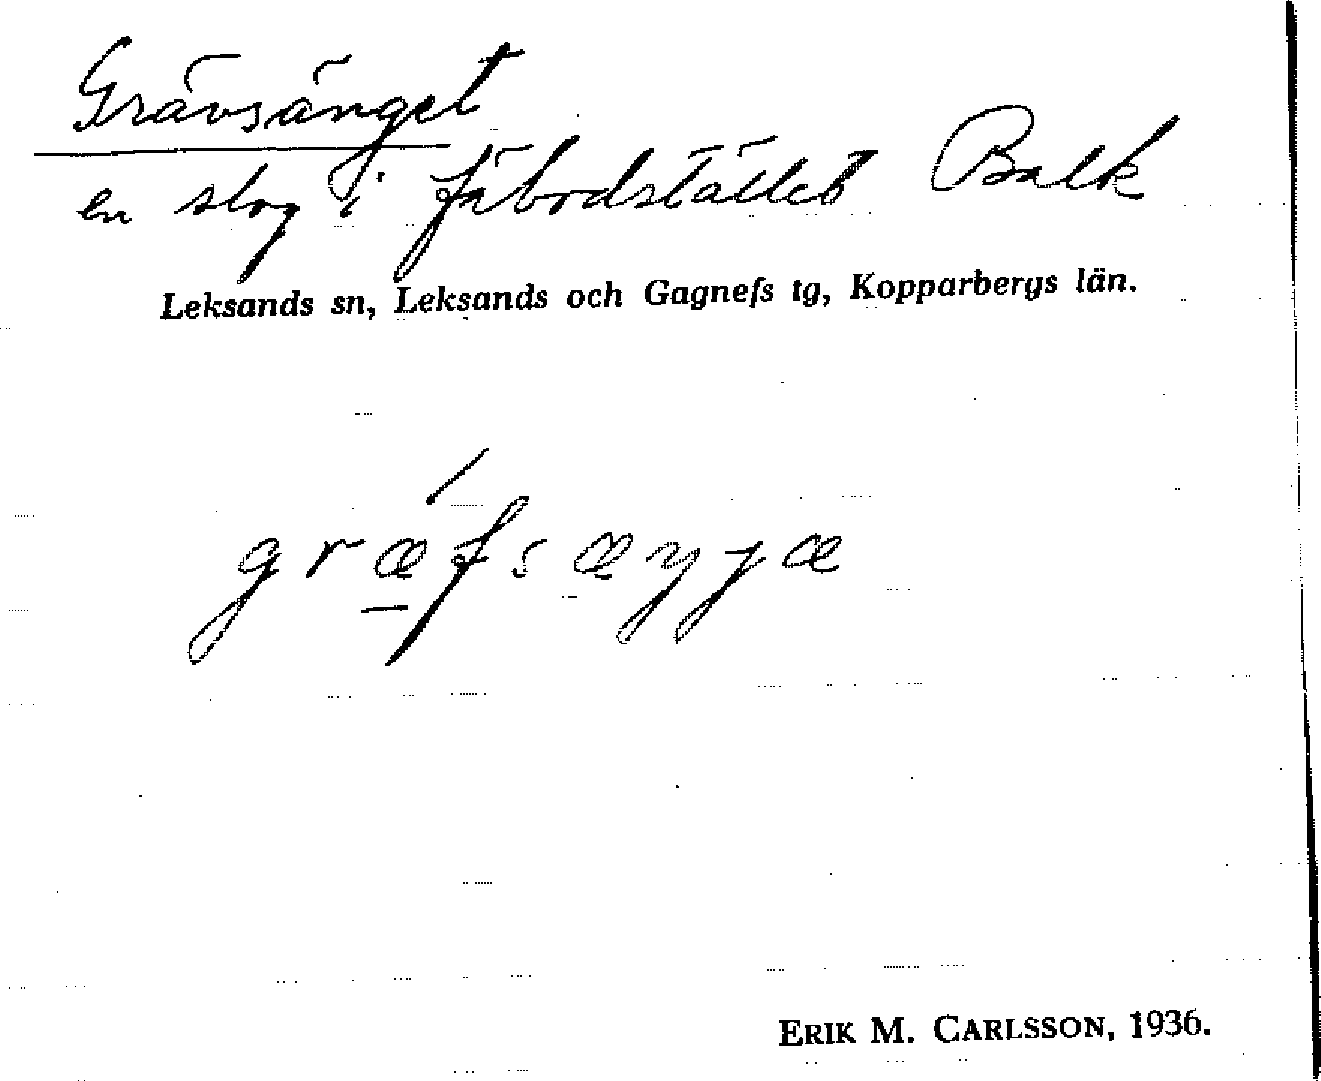 Grävsänget
en slog i fäbodstället Balk
Leksands sn, Leksands och Gagneſs tg, Kopparbergs län.
grǽ̱fsæŋjæ
ERIK M. CARLSSON, 1936.